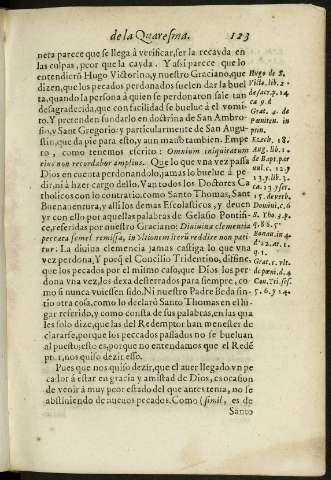 de la Quaresma. 123
neta parece que se llega à verificar, ser la recayda en
las culpas, peor que la cayda. Y assi parece que lo
entendierõ Hugo Victorino, y nuestro Graciano, que
dizen, que los pecados perdonados suelen dar la buel
ta, quando la persona à quien se perdonaron sale tan
desagradecida, que con facilidad se buelue al el vomi-
to. Y pretenden fundarlo en doctrina de San Ambro-
sio, y Sant Gregorio: y particularmente de San Augu-
stin, que da pie para esto, y aun mas: tambien. Empe
ro, como tenemos escrito: Omnium iniquitatum
eius non recordabor amplius. Que lo que vna vez passa
Dios en cuenta perdonandolo, jamas lo buelue à pe-
dir, ni à hazer cargo dello. Van todos los Doctores Ca
tholicos con lo contrario, como Santo Thomas, Sant
Buenauentura, y alli los demas Escolasticos, y deuen
yr con ello por aquellas palabras de Gelasio Pontifi-
ce, referidas por nuestro Graciano: Diuina clementia
peccata semel remissa, in vltionem iterũ reddire non pati
tur. La diuina clemencia jamas castiga lo que vna
vez perdona, Y porq̃ el Concilio Tridentino, difine,
que los pecados por el mismo caso, que Dios los per-
dona vna vez, los dexa desterrados para siempre, co-
mo si nunca vuiessen sido. Ni nuestro Padre Beda sin-
tio otra cosa, como lo declarò Santo Thomas en el lu-
gar referido, y como consta de sus palabras, en las qua
les solo dize, que las del Redemptor han menester de
clararse, porque los peccados passados no se bueluan
al puesto; esto es, porque no entendamos que el Redẽ
ptor, nos quiso dezir esso.
Pues que nos quiso dezir, que el auer llegado vn pe
cador à estar en gracia y amistad de Dios, es ocasion
de venir à muy peor estado del que antes tenia, no se
absteniendo de nueuos pecados. Como (simil, es de
Santo
Hugo de S.
Victo. lib. 2.
de sacr. p. 14
ca 9. &
Grat. 4. de
Peniten. in
prin.
Ezech. 18.
Aug. lib. 1.
de Bapt. par
uul. c. 12. &
13. & lib. 3.
ca. 13. & ser.
15. de verb.
Domini, c. 6
S. Tho. 3. p.
q. 88.
Bonau. in 4.
d. 22. ar. 1.
q. 1.
Grat. c. vlt.
de peni. d. 4
Con. Tri. ses.
5. 6. & 14.